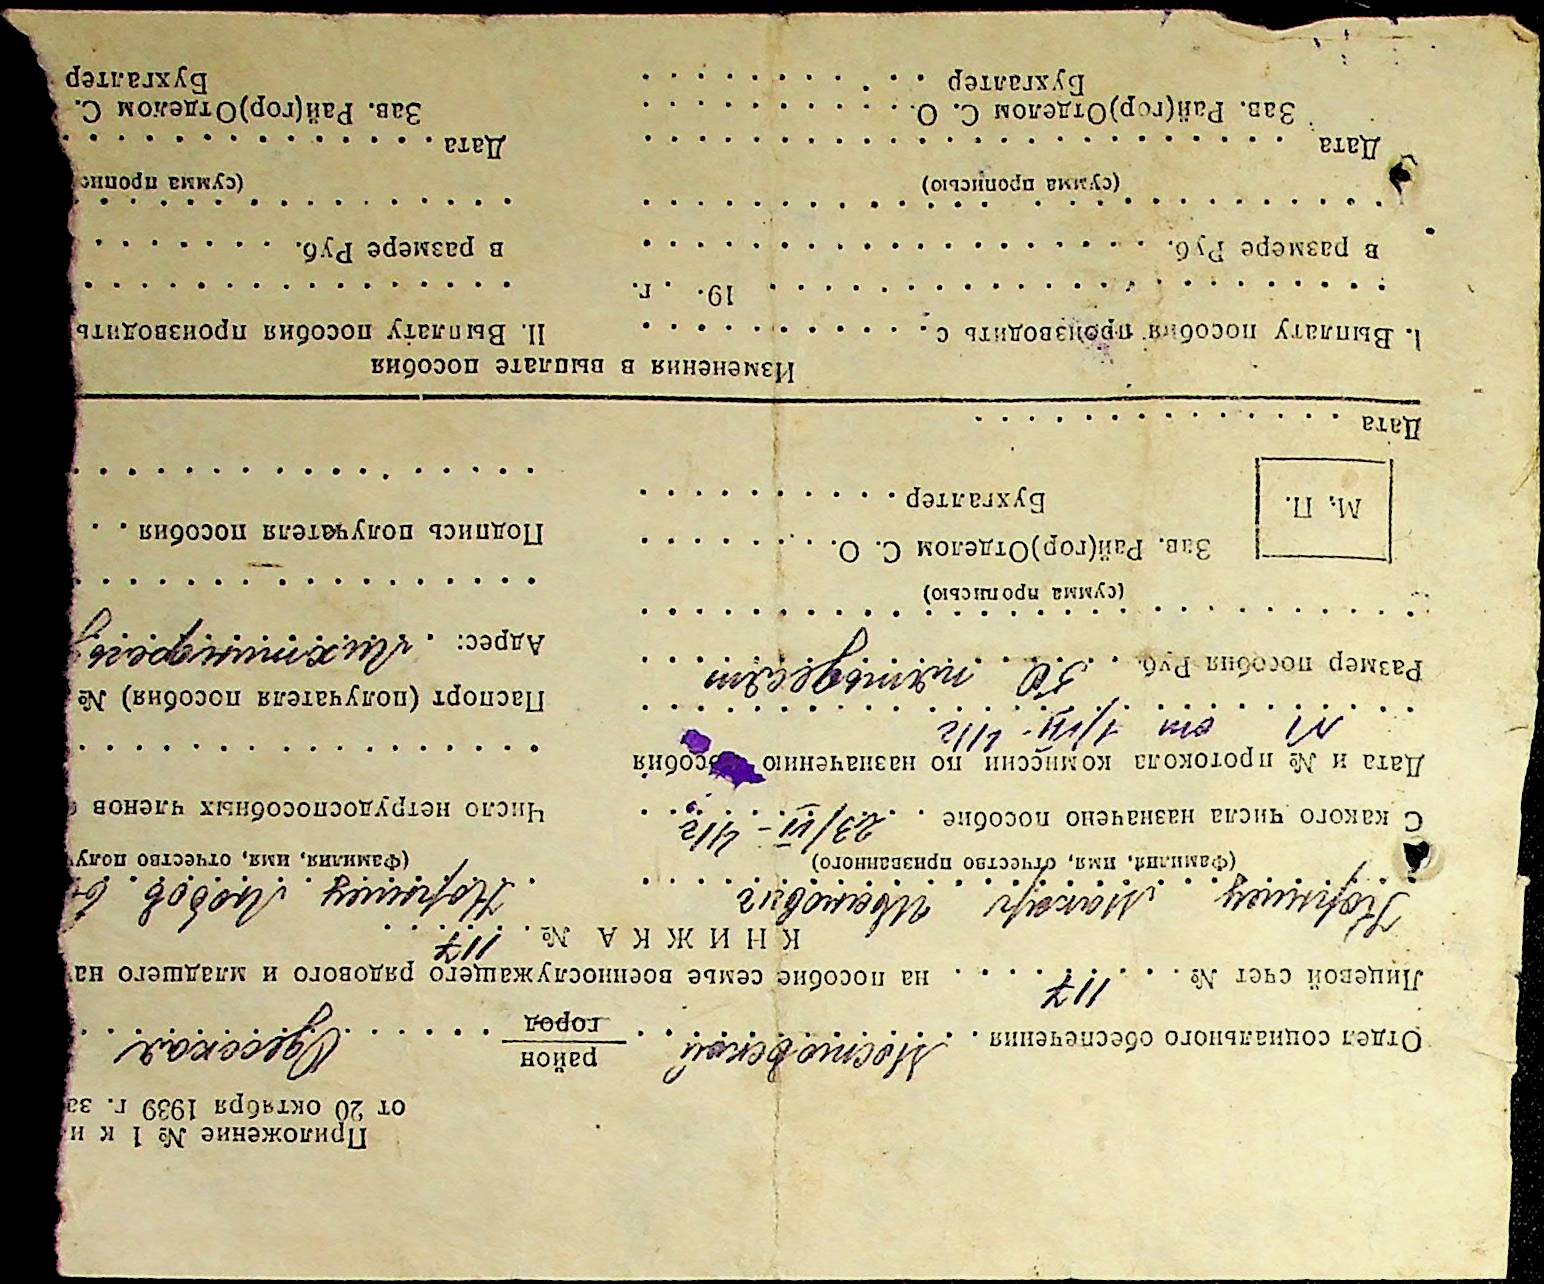 Приложение № 1 к и
от 20 октября 1939 г. за
Отдел социального обеспечения . Мостовской район город Одесская
Лицевой счет № 117 на пособие семье военнослужащего рядового и младшего на
КНИЖКА № 117
Макар Иванович
Любов
(Фамилия, имя, отчество призванного)
(Фамилия, имя, отчество получ
С какого числа назначено пособие . 23/VI - 41
Число нетрудоспособных членов
Дата и № протокола комиссии по назначению пособия
от 1/VII 41
Паспорт (получателя пособия) №
Размер пособия Руб. 50 пятьдесят
Адрес:
(сумма прописью)
Зав. Рай(гор)Отделом С. О.
Подпись получателя пособия
М. П.
Бухгалтер
Дата
Изменения в выплате пособия
I. Выплату пособия производить с
19 . . г.
в размере Руб.
(сумма прописью)
Дата
Зав. Рай(гор)Отделом С. О.
Бухгалтер
II. Выплату пособия производить
в размере Руб.
(сумма пропис
Дата
Зав. Рай(гор)Отделом С.
Бухгалтер